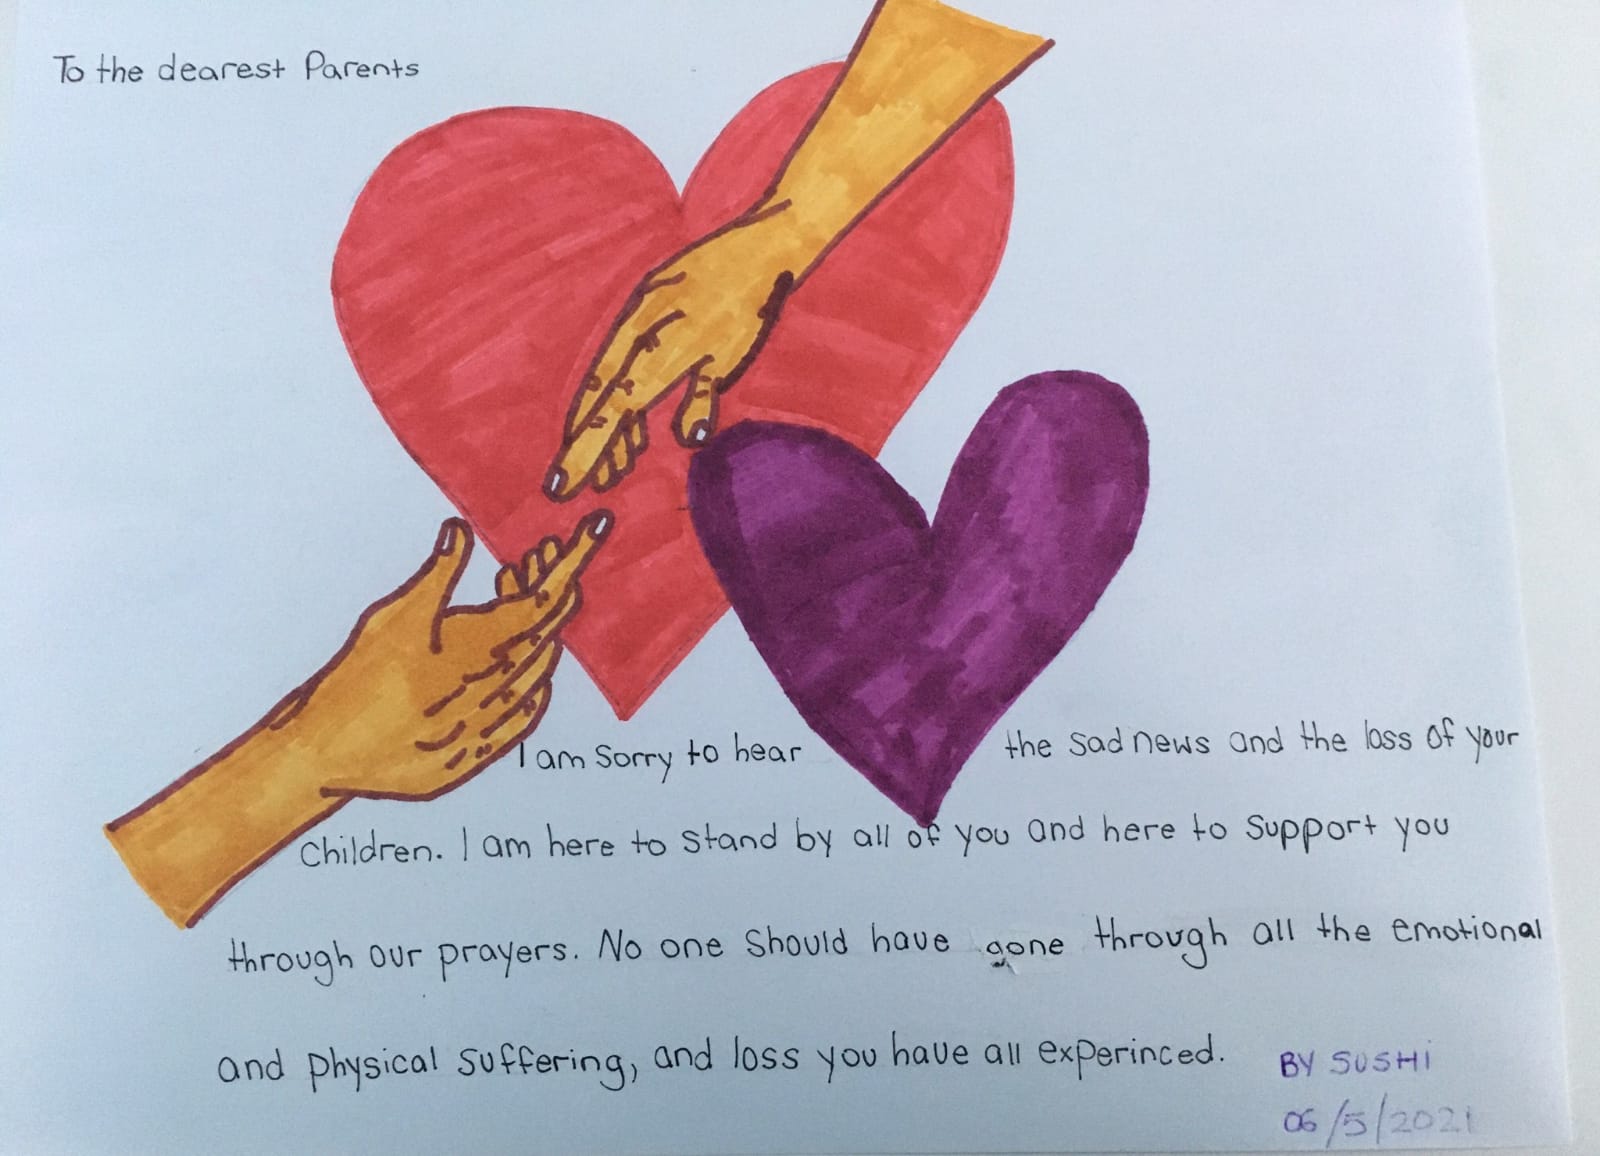 To the dearest Parents
I am sorry to hear the sad news and the loss of your
children. I am here to stand by all of you and here to support you
through our prayers. No one should have gone through all the emotional
and physical suffering, and loss you have all experinced.
BY SUSHi
06/5/2021